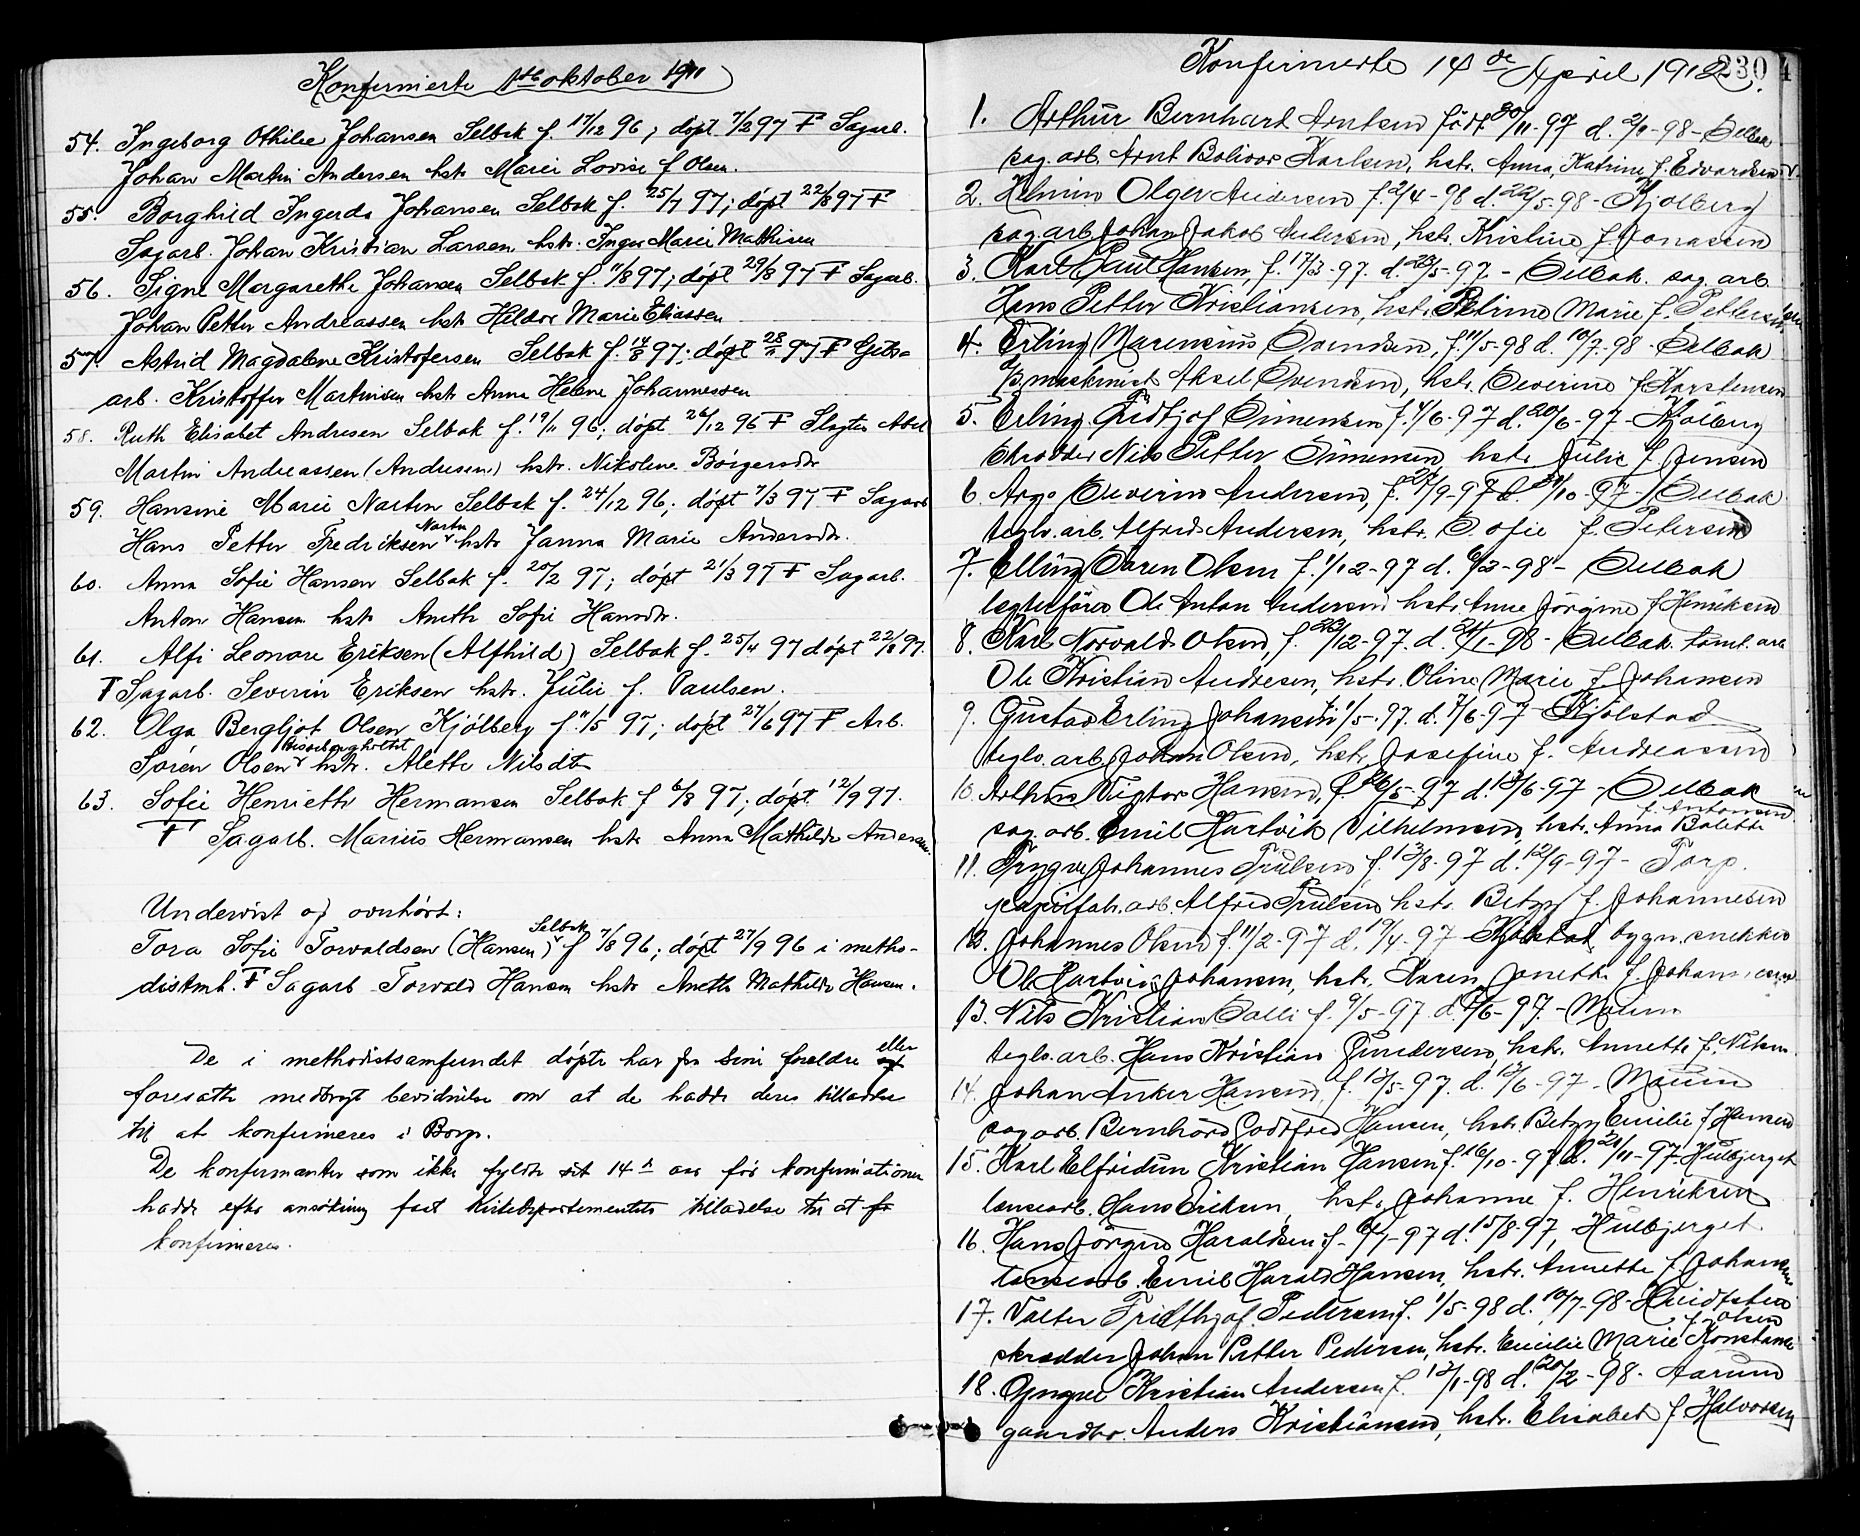 Konfirmerte 1ste oktober 1911
54. Ingeborg Othilie Johansen Selbak f. 17/12 96; døpt 7/2 97 F Sagarb.
Johan Martin Andersen hstr Marie Lovise f Olsen.
55. Borghild Ingerda Johansen Selbak f. 25/7 97; døpt 22/8 97 F
Sagarb. Johan Kristian Larsen hstr. Inger Marie Mathisen
56. Signe Margarethe Johansen Selbak f. 11/8 97; døpt 29/8 97 F Sagarb.
Johan Petter Andreassen hstr Helder Marie Eliassen
57. Astrid Magdalene Kristofersen Selbak f. 14/8 97; døpt 28/11 97 F
arb. Kristoffer Martinsen hstr Anna Helene Johannessen
58. Ruth Elisabet Andresen Selbak f. 19/11 96; døpt 26/12 96 F Slagter Abel
Martin Andreassen (Andresen) hstr. Nikoline Börgersdtr
59. Hansine Marie Narten Selbak f. 24/12 96; døpt 7/3 97 F Sagarb
Hans Petter Fredriksen Narten hstr Janna Marie Andersdtr.
60. Anna Sofie Hansen Selbak f. 20/2 97; døpt 21/3 97 F Sagarb.
Anton Hansen hstr Aneth Sofie Hansdtr.
61. Alfi Leonore Eriksen (Alfhild) Selbak f. 25/4 97 døpt 22/8 97.
F Sagarb. Severin Eriksen hstr. Julie f. Paulsen.
62. Olga Bergljot Olsen Kjölberg f. 11/5 97; døpt 27/6 97 F Arb.
Søren Olsen hstr. Alette Nilsdtr
63. Sofie Henriette Hermansen Selbak f 6/8 97; døpt 12/9 97.
F Sagarb. Marius Hermansen hstr Anna Mathilde Andersen.
Undervist og overhørt:
Tora Sofie Torvaldsen (Hansen) Selbak f 7/8 96; døpt 27/9 96 i metho-
distmh. F Sagarb Torvald Hansen hstr Aneth Mathilde Hansen.
De i methodistsamfundet døpte har fra sine foreldre eller
foresatte medbragt bevidnelse om at de hadde deres tilladelse
til at konfirmeres i Borge.
De konfirmanter som ikke fyldte sit 14de aar før konfirmationen
hadde efter ansökning faat Kirkedepartementets tilladelse til at
konfirmeres.
Konfirmerte 14de April 1912.
230
1. Arthur Bernhart Arntsen født 30/11-97 d. 2/1-98 - Selbak
sag.arb. Arnt Bolivar Karlsen, hstr. Anna Katrine f. Edvardsen
2. Olger Andersen f. 2/4-98 d. 22/5-98 - Kjølberg
sag.arb. Johan Jakob Andersen, hstr. Kristine f Jonassen
3. Karl Paul Hansen, f. 17/3-97. d. 23/5-97 - Selbak. sag.arb.
Hans Petter Kristiansen, hstr. Petrine Marie f. Pettersen
4. Erling Marensius Svendsen, f. 11/5-98 d. 10/7-98 - Selbak
maskinist Aksel Svendsen, hstr. Severine f Karstensen
5. Erling Fridtjof Simensen f. 4/6-97 d. 20/6-97 - Kjølberg
skrædder Nils Petter Simensen hstr. Julie f. Jensen
6. Severin Andersen, f. 27/9-97 d. 31/10-97 - Selbak
teglv.arb. Alfred Andersen, hstr. Sofie f. Petersen
7. Elling Søren Olsen f. 1/12-97 d. 6/2-98 - Selbak
Ole Anton Andersen hstr. Anne Jörgine f Henriksen
8. Karl Norvald Olsen, f. 23/12-97. d. 24/1-98 - Selbak. tomt.arb
Ole Kristian Andresen, hstr. Oline Marie f Johansen
9. Gustav Erling Johansen f. 1/5-97. d. 7/6-97 - Kjølstad
teglv.arb. Johan Olsen, hstr. Josefine f. Andreassen
10. Arthur Victor Hansen, f. 26/5-97 d. 13/6-97 - Selbak
sag.arb. Emil Hartvik Vilhelmsen, hstr. Anna Bolette f. Antonsen
11. Trygve Johannes Trulsen f. 13/8-97 d. 12/9-97 - Torp.
papirfab.arb. Alfred Trulsen hstr. Betzy f. Johannesen
12. Johannes Olsen f. 11/2-97 d. 19/4-97 Kjølstad, bygn.snekker
Ole Hartvig Johansen, hstr. Karen Janette f. Johannesen
13. Nils Kristian Salli f. 9/5-97 d. /6-97. - Moum
teglv.arb. Hans Kristian Gundersen, hstr. Annette f. Nilsen.
14. Johan Anker Hansen, f. 13/5-97. d. 13/6-97 - Moum
sagarb. Bernhard Godtfred Hansen, hstr. Betzy Emilie f Hansen
15. Karl Elfridun Kristian Hansen f. 16/10-97 d. 21/11-97. Hulbjerget
lænsearb. Hans Eriksen, hstr. Johanne f. Henriksen
16. Hans Jörgen Haraldsen f. 6/7-97 d. 15/8-97, Hulbjerget
lænsearb. Emil Harald Hansen, hstr. Annette f Johansen
17. Valter Fridthjof Pedersen f. 1/5-98 d. 10/7-98 - Hvidsten
skrædder Johan Petter Pedersen, hstr. Emilie Marie Konstanse f. Olsen
18. Kristian Andersen f. 12/1-98 d. 20/2-98. Aarum
gaardbr. Anders Kristiansen, hstr. Elisabet f Halvorsen